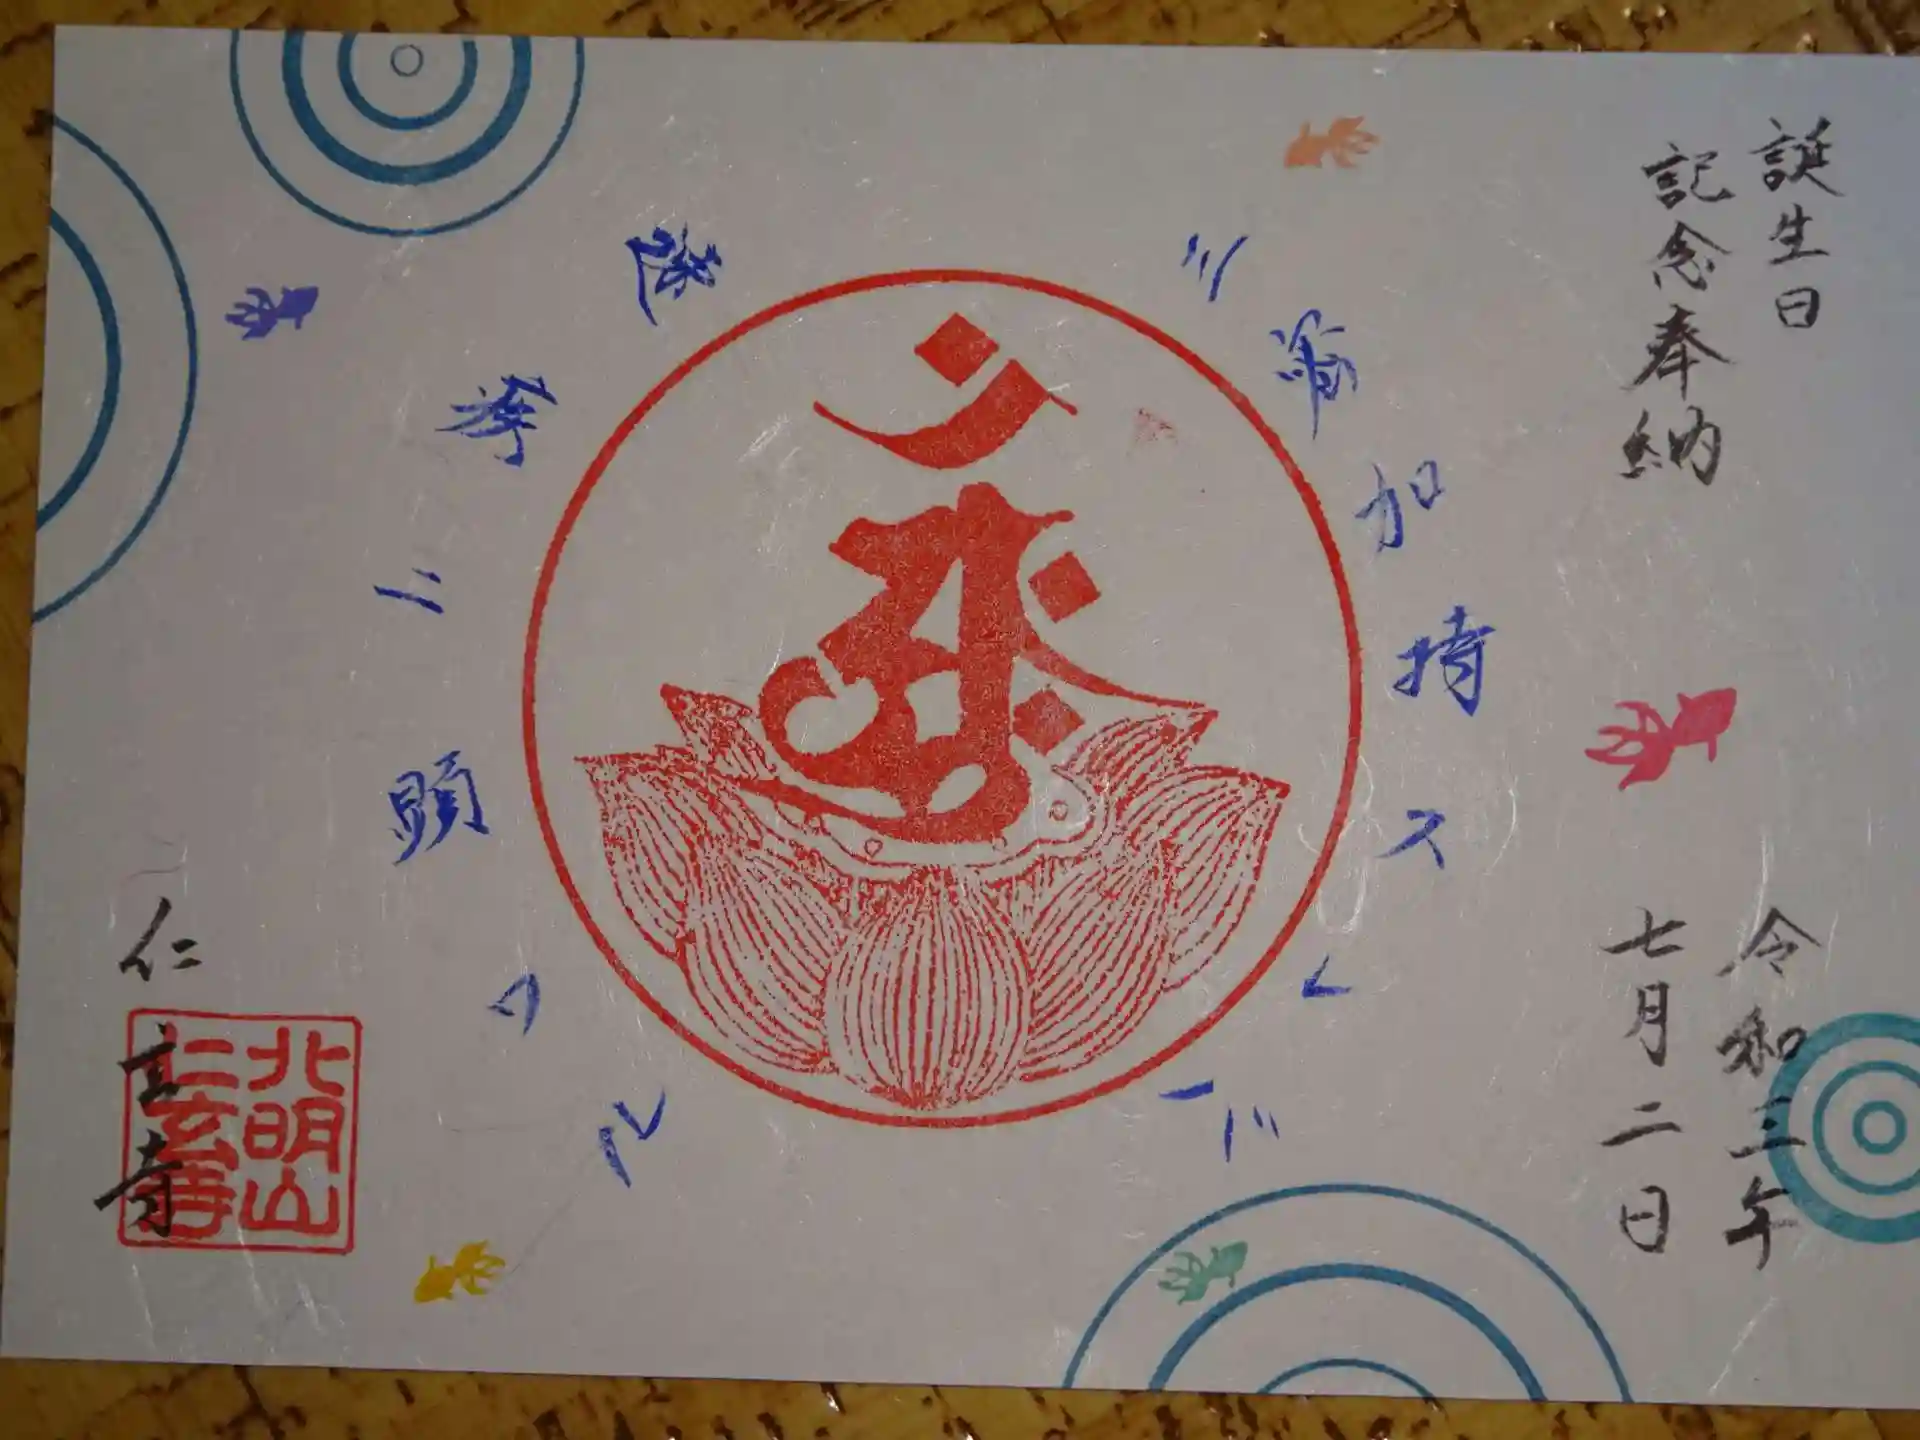 誕生日
記念奉納
令和三年
七月二日
三密加持スレバ
速疾ニ顕ワル
仁玄寺
北明山
仁玄寺